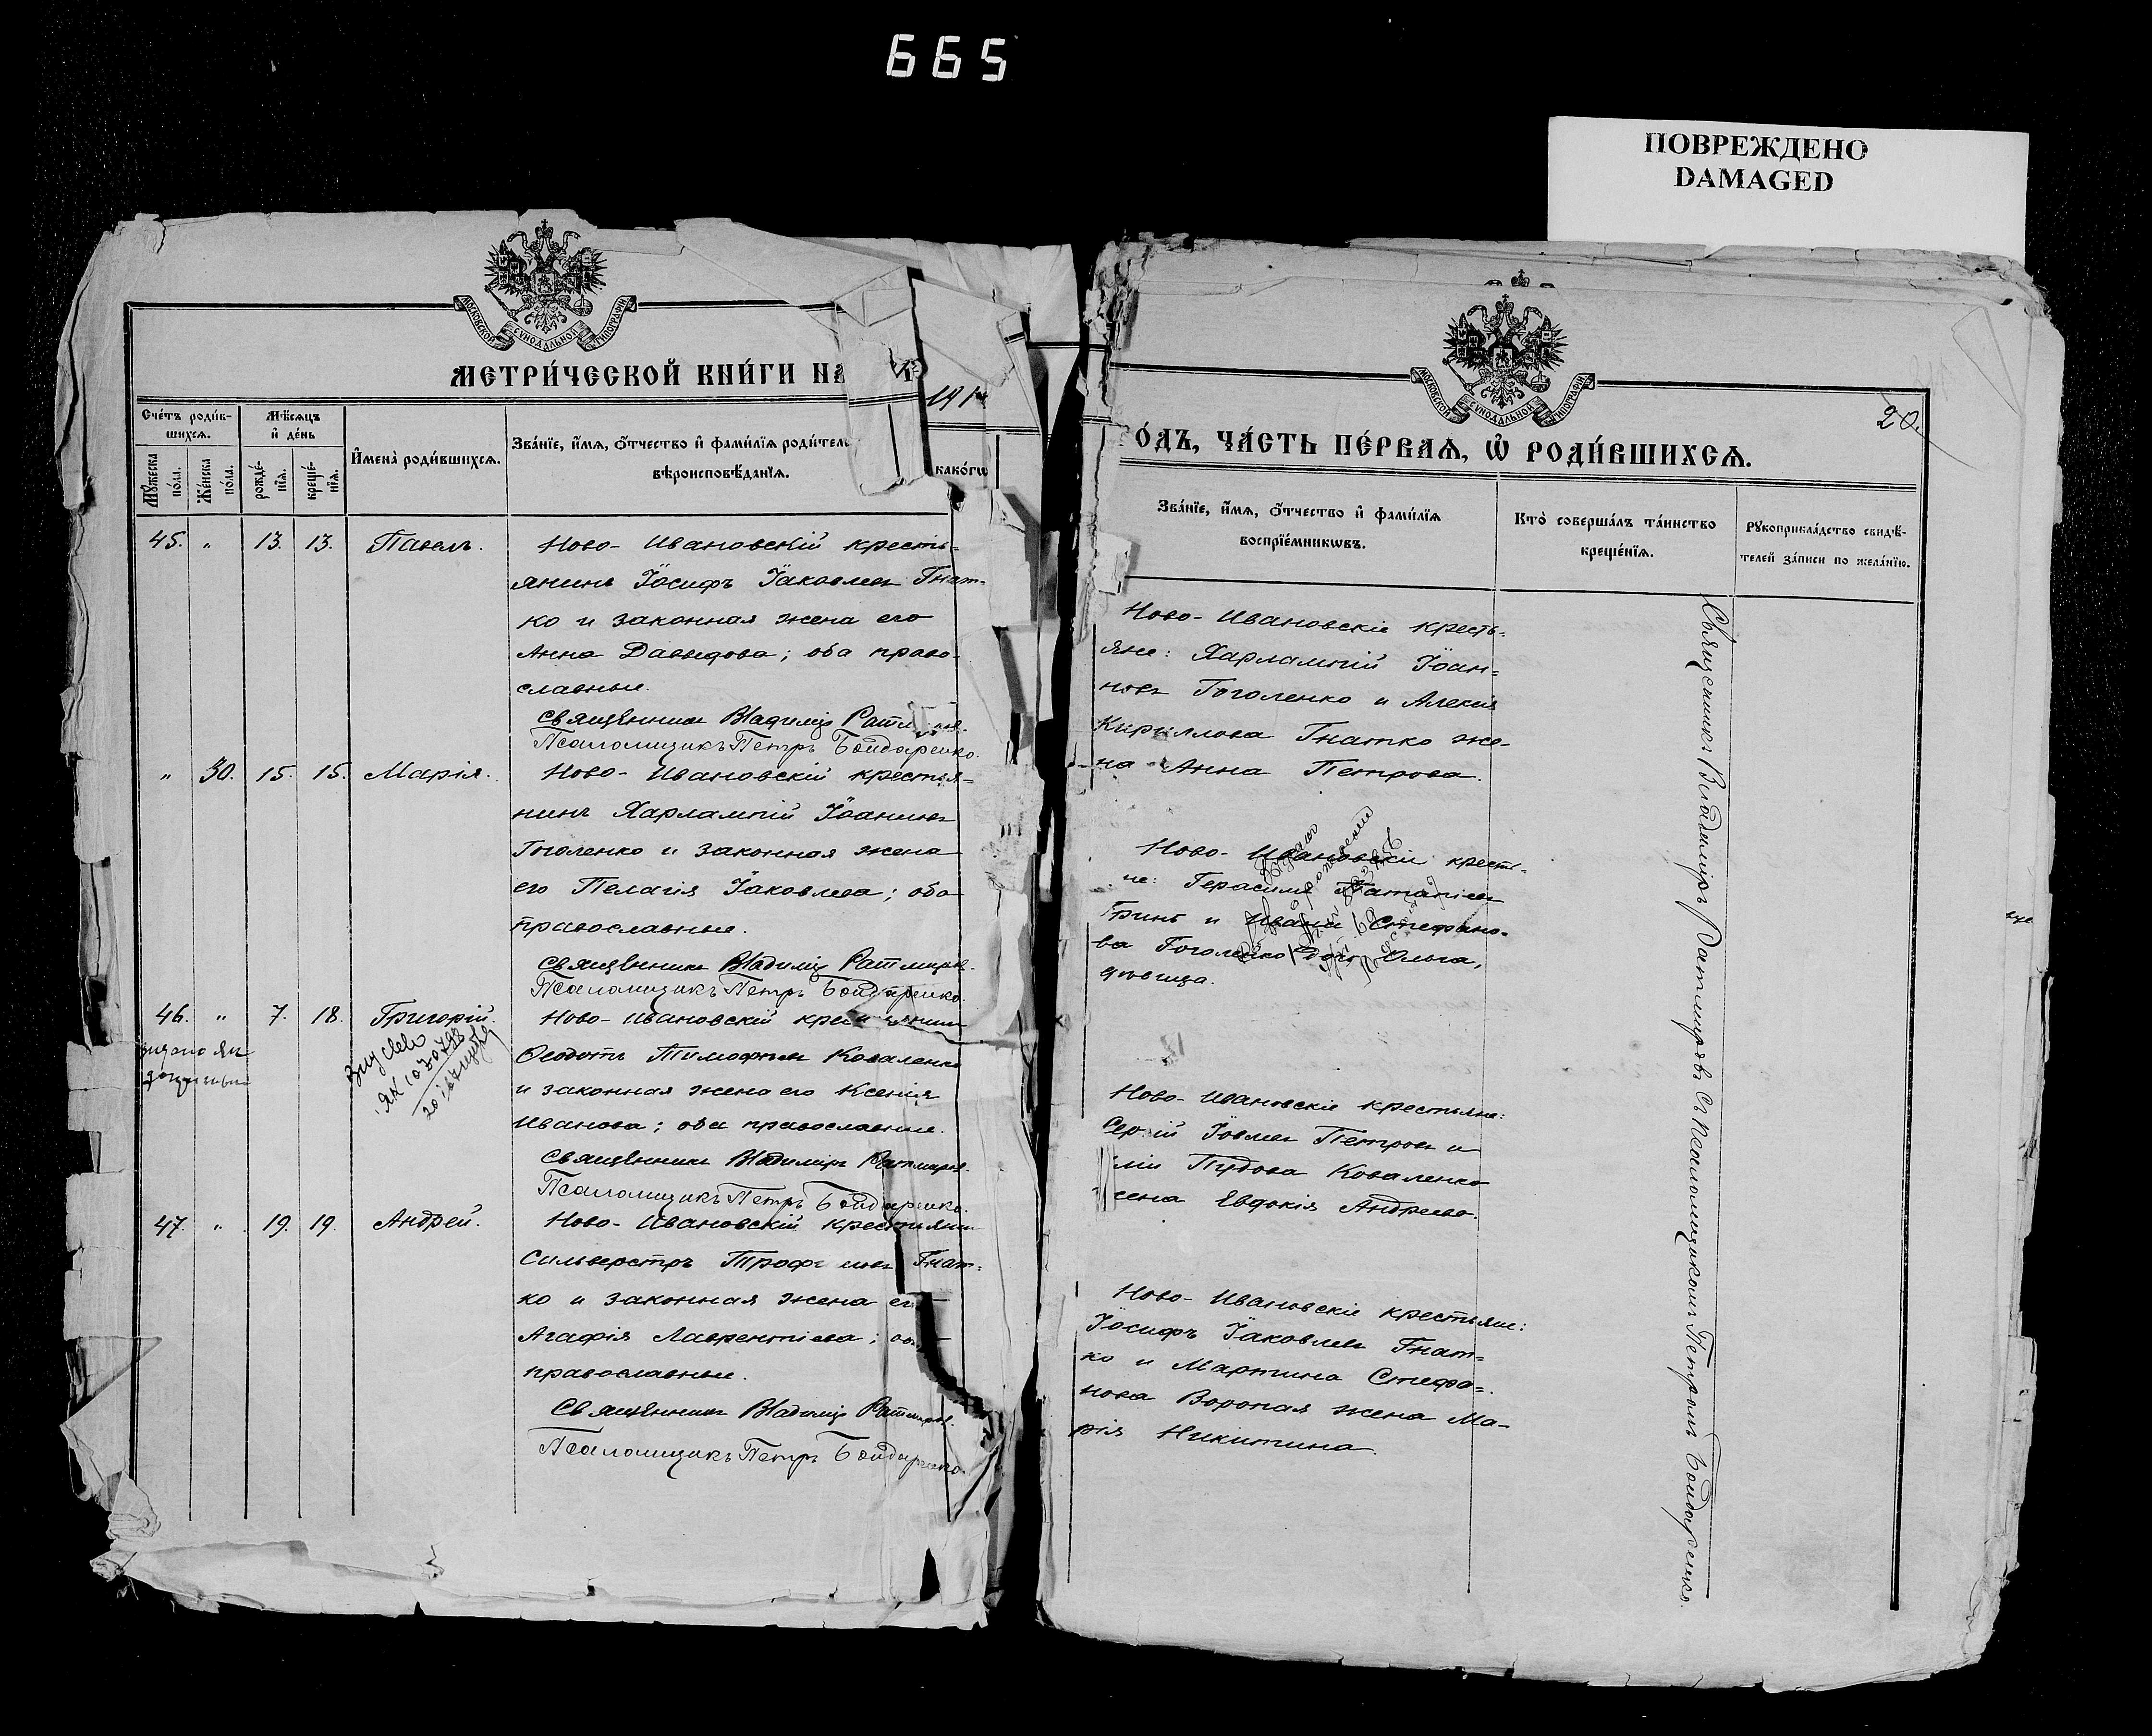 665
ПОВРЕЖДЕНО
DAMAGED
МОСКОВСКОЙ СѴНОДАЛЬНОЙ ТИПОГРАФІИ
МЕТРИ́ЧЕСКОЙ КНИ́ГИ НА
191
Сче́тъ роди́в-
шихсѧ.
Мѣ́сѧцъ
и҆ де́нь
Мꙋ́жеска по́ла.
Же́нска по́ла.
рожде́-нїѧ.
креще́-нїѧ.
И҆мена̀ роди́вшихсѧ.
Зва́нїе, и҆́мѧ, ѻ҆́тчество и҆ фами́лїѧ роди́тел
како́гѡ
вѣроисповѣ́данїѧ.
45. „ 13. 13. Павелъ.
Ново-Ивановскій кресть-
янинъ Іосифъ Іаковлевъ Гнат-
ко и законная жена его
Анна Давыдова; оба право-
славные.
Священникъ Владиміръ
Псаломщикъ Петръ Бондаренко.
„ 30. 15. 15. Марія.
Ново-Ивановскій крестья-
нинъ Харлампій Іоанновъ
Гоголенко и законная жена
его Пелагія Іаковлева; оба
православные.
Священникъ Владиміръ Ратмировъ.
Псаломщикъ Петръ Бондаренко.
46. „ 7. 18. Григорій.
Ново-Ивановскій
Ѳеодотъ Тимофеевъ Коваленко
и законная жена его Ксенія
Иванова; оба православные.
Священникъ Владиміръ Ратмировъ.
Псаломщикъ Петръ Бондаренко.
47. „ 19. 19. Андрей.
Ново-Ивановскій крестьянин
Сильверстръ Гнат-
ко и законная жена
Агафія Лаврентіева;
православные.
Священникъ Владиміръ Ратмировъ.
Псаломщикъ Петръ Бондаренко
МОСКОВСКОЙ СѴНОДАЛЬНОЙ ТИПОГРАФІИ
20.
О́ДЪ, ЧА́СТЬ ПЕ́РВАѦ, Ѡ҆ РОДИ́ВШИХСѦ.
Зва́нїе, и҆́мѧ, ѻ҆́тчество и҆ фами́лїѧ
воспрїе́мникѡвъ.
Кто̀ соверша́лъ та́инство
креще́нїѧ.
Рꙋкоприкла́дство свидѣ́-
телей за́писи по жела́нїю.
Ново-Ивановскіе кресть-
яне: Харлампій Іоан-
новъ Гоголенко и Алексія
Кириллова Гнатко же-
на Анна Петрова.
Ново-Ивановскіе крест-
не: Герасимъ
Гринь и Стефано-
ва Гоголенко Ольга,
дѣвица.
Ново-Ивановскіе крестьяне:
Іовлевъ Петровъ и
Пудова Коваленко
жена Евдокія Андреева.
Ново-Ивановскіе крестьяне:
Іосифъ Іаковлевъ Гнат-
ко и Мартина Стефа-
нова Вороная жена Ма-
рія Никитина.
Священникъ Владиміръ Ратмировъ съ псаломщикомъ Петромъ Бондаренко.